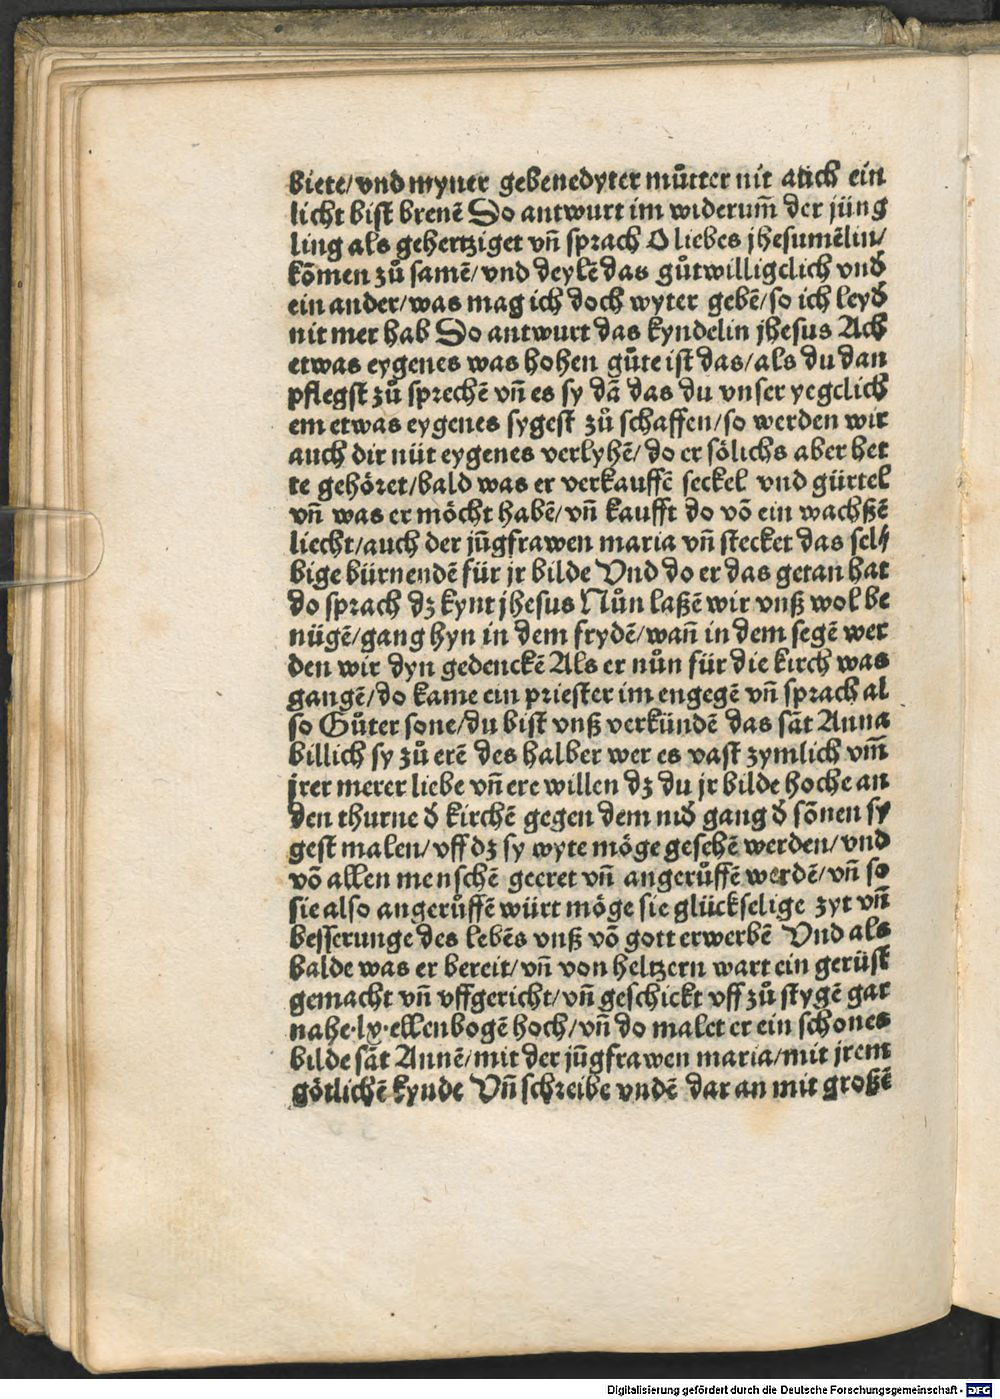 biete/vnd myner gebenedyter můtter nit auch ein
licht bist brenē So antwurt im widerum̄ der jüng
ling als gehertziget vn̄ sprach O liebes jhesumēlin/
kōmen zů samē/vnd deylē das gůtwilligclich vnd
ein ander/was mag ich doch wyter gebē/so ich leyd
nit mer hab So antwurt das kyndelin jhesus Ach
etwas eygenes was hohen gůte ist das/als du dan
pflegst zů sprechē vn̄ es sy dā das du vnser yegclich
em etwas eygenes sygest zů schaffen/so werden wir
auch dir nüt eygenes verlyhē/do er sölichs aber het
te gehöret/bald was er verkauffē seckel vnd gürtel
vn̄ was er möcht habē/vn̄ kaufft do vō ein wachßē
liecht/auch der jūgfrawen maria vn̄ stecket das sel⸗
bige bürnendē für jr bilde Vnd do er das getan hat
do sprach dz kynt jhesus Nůn laßē wir vnß wol be
nügē/gang hyn in dem frydē/wan̄ in dem segē wer
den wir dyn gedenckē Als er nůn für die kirch was
gangē/do kame ein priester im engegē vn̄ sprach al
so Gůter sone/du bist vnß verkündē das sāt Anna
billich sy zů erē des halber wer es vast zymlich vm̄
jrer merer liebe vn̄ ere willen dz du jr bilde hoche an
den thurne d̄ kirchē gegen dem nid̄ gang d̄ sōnen sy
gest malen/vff dz sy wyte möge gesehē werden/vnd
vō allen menschē geeret vn̄ angerůffē werdē/vn̄ so
sie also angerůffē würt möge sie glückselige zyt vn̄
besserunge des lebēs vnß vō gott erwerbē Vnd als
balde was er bereit/vn̄ von heltzern wart ein gerüst
gemacht vn̄ vffgericht/vn̄ geschickt vff zů stygē gar
nahe·lx·ellenbogē hoch/vn̄ do malet er ein schones
bilde sāt Annē/mit der jūgfrawen maria/mit jrem
götlichē kynde Vn̄ schreibe vndē dar an mit großē
Digitalisierung gefördert durch die Deutsche Forschungsgemeinschaft - DFG